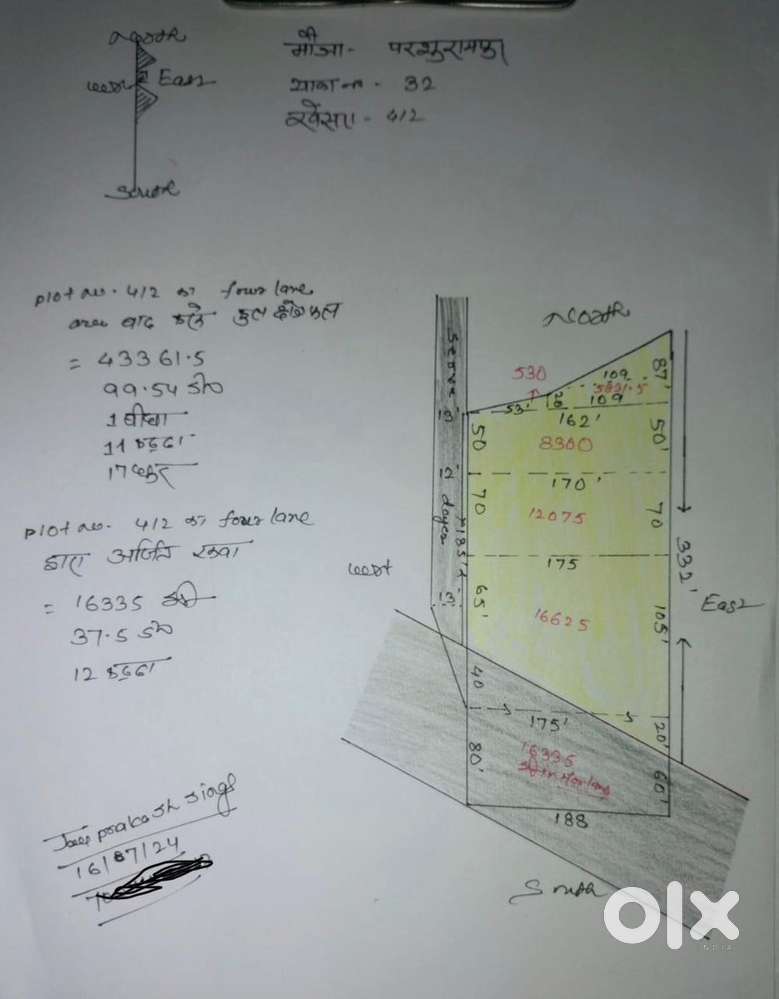 North
West East
South
मौजा - परशुरामपुर
थाना न० - 32
खेसरा - 412
plot no. 412 का four lane
area बाद करके कुल क्षेत्रफल
= 43361.5
99.54 डी०
1 बीघा
11 कट्ठा
17 धुर
plot no. 412 का four lane
द्वारा अर्जित रकवा
= 16335
37.5 डी०
12 कट्ठा
Jai prakash singh
16/07/24
North
530
109
87'
5821.5
53'
26
109
13'
162'
50
8300
50'
12'
170'
70
12075
70
185'
175
332'
West
13'
65'
16625
105'
East
40
175'
20'
80'
16335
in four lane
60'
188
South
olx
INDIA